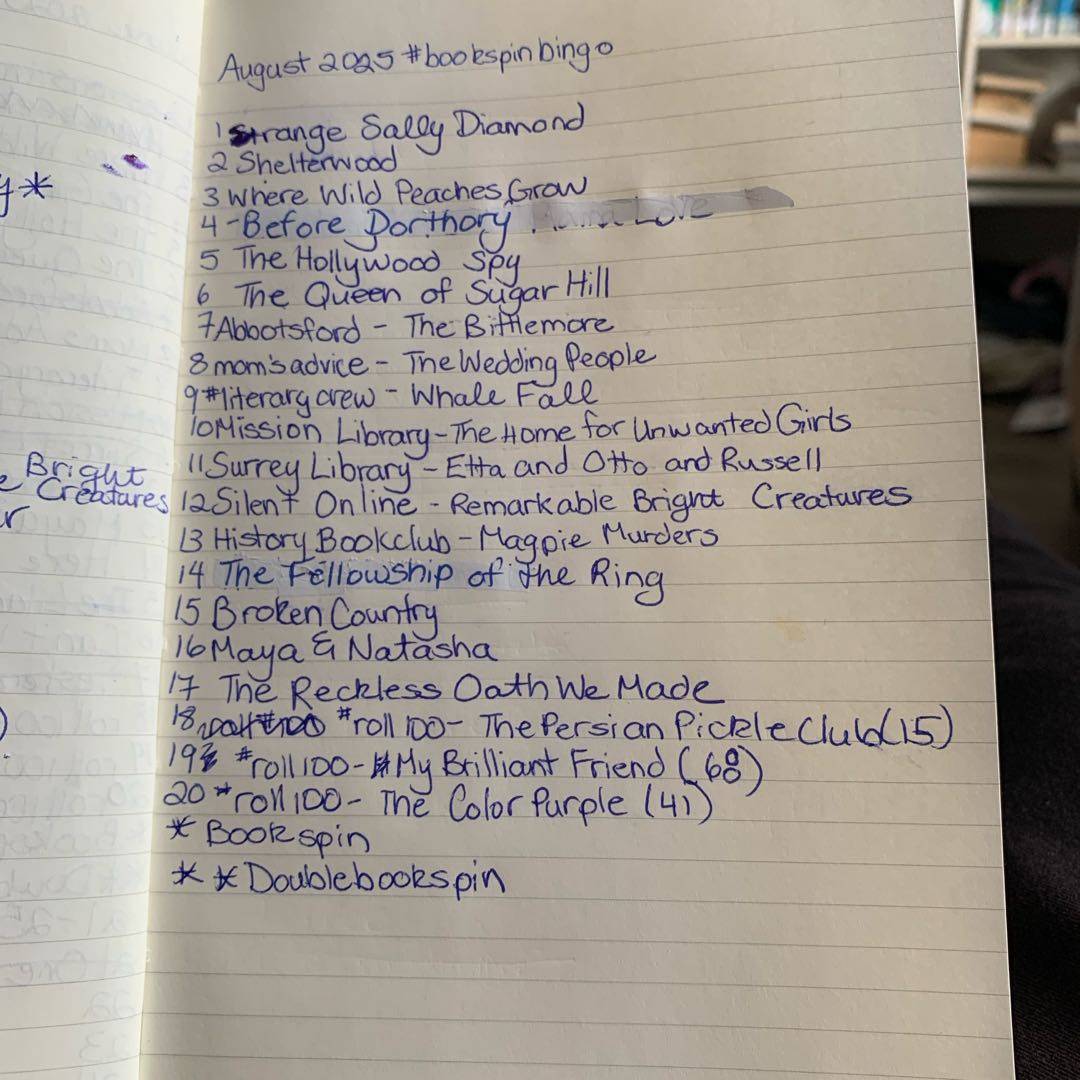 August 2025 #bookspinbingo
1 Strange Sally Diamond
2 Shelterwood
3 Where Wild Peaches Grow
4 - Before Dorthory Love
5 The Hollywood Spy
6 The Queen of Sugar Hill
7 Abbotsford - The Bittlemore
8 mom's advice - The Wedding People
9 #literary crew - Whale Fall
10 Mission Library - The Home for Unwanted Girls
11 Surrey Library - Etta and Otto and Russell
12 Silent Online - Remarkable Bright Creatures
13 History Bookclub - Magpie Murders
14 The Fellowship of the Ring
15 Broken Country
16 Maya & Natasha
17 The Reckless Oath We Made
18 #roll 100 - The Persian Pickle Club (15)
19 #roll 100 - My Brilliant Friend (68)
20 #roll 100 - The Color Purple (41)
* Bookspin
* * Doublebookspin
y*
Bright
Creatures